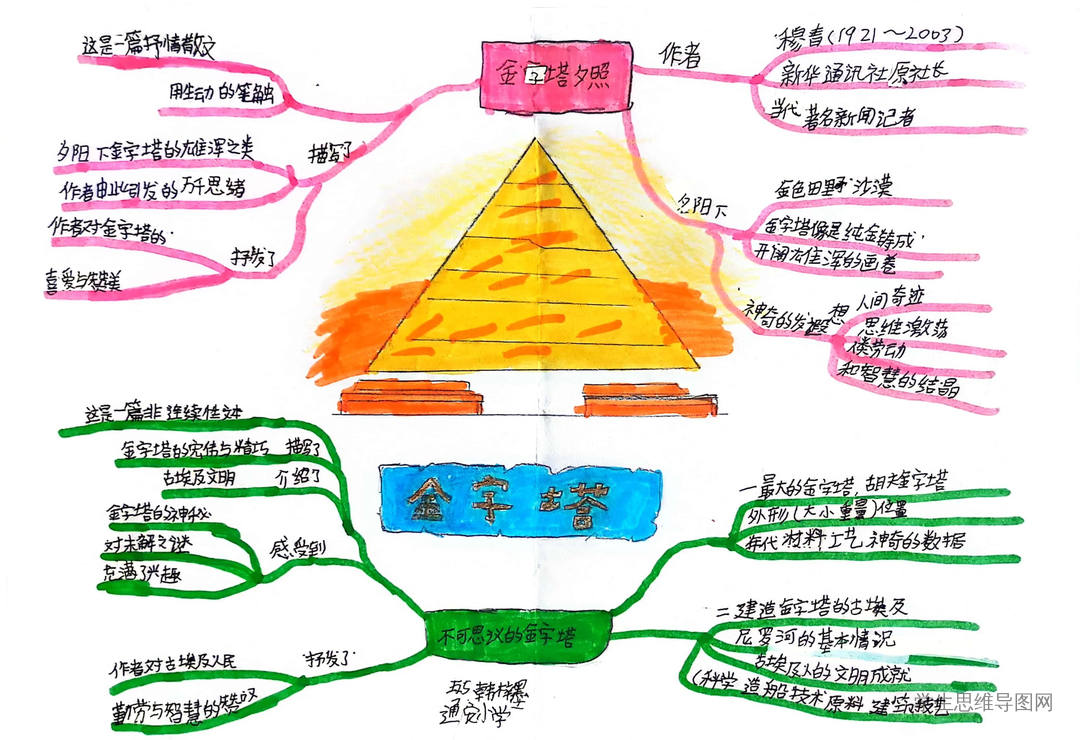 金字塔夕照
作者
穆青(1921～2003)
新华通讯社原社长
当代著名新闻记者
夕阳下
金色田野 沙漠
金字塔像是纯金铸成
开阔雄浑的画卷
神奇的发 想
人间奇迹
思维激荡
偻劳动
和智慧的结晶
这是一篇抒情散文
用生动的笔触
描写了
夕阳下金字塔的雄浑之美
作者由此引发的万千思绪
抒发了
作者对金字塔的
喜爱与赞美
金字塔
不可思议的金字塔
这是一篇非连续性文
金字塔的宏伟与精巧 描写了
古埃及文明 介绍了
感受到
金字塔的神秘
对未解之谜
充满了兴趣
抒发了
作者对古埃及人民
勤劳与智慧的赞叹
一最大的金字塔,胡夫金字塔
外形(大小重量)位置
年代 材料工艺 神奇的数据
二建造金字塔的古埃及
尼罗河的基本情况
古埃及人的文明成就
(科学 造船技术 原料 建筑技艺
通安小学
生思维导图网